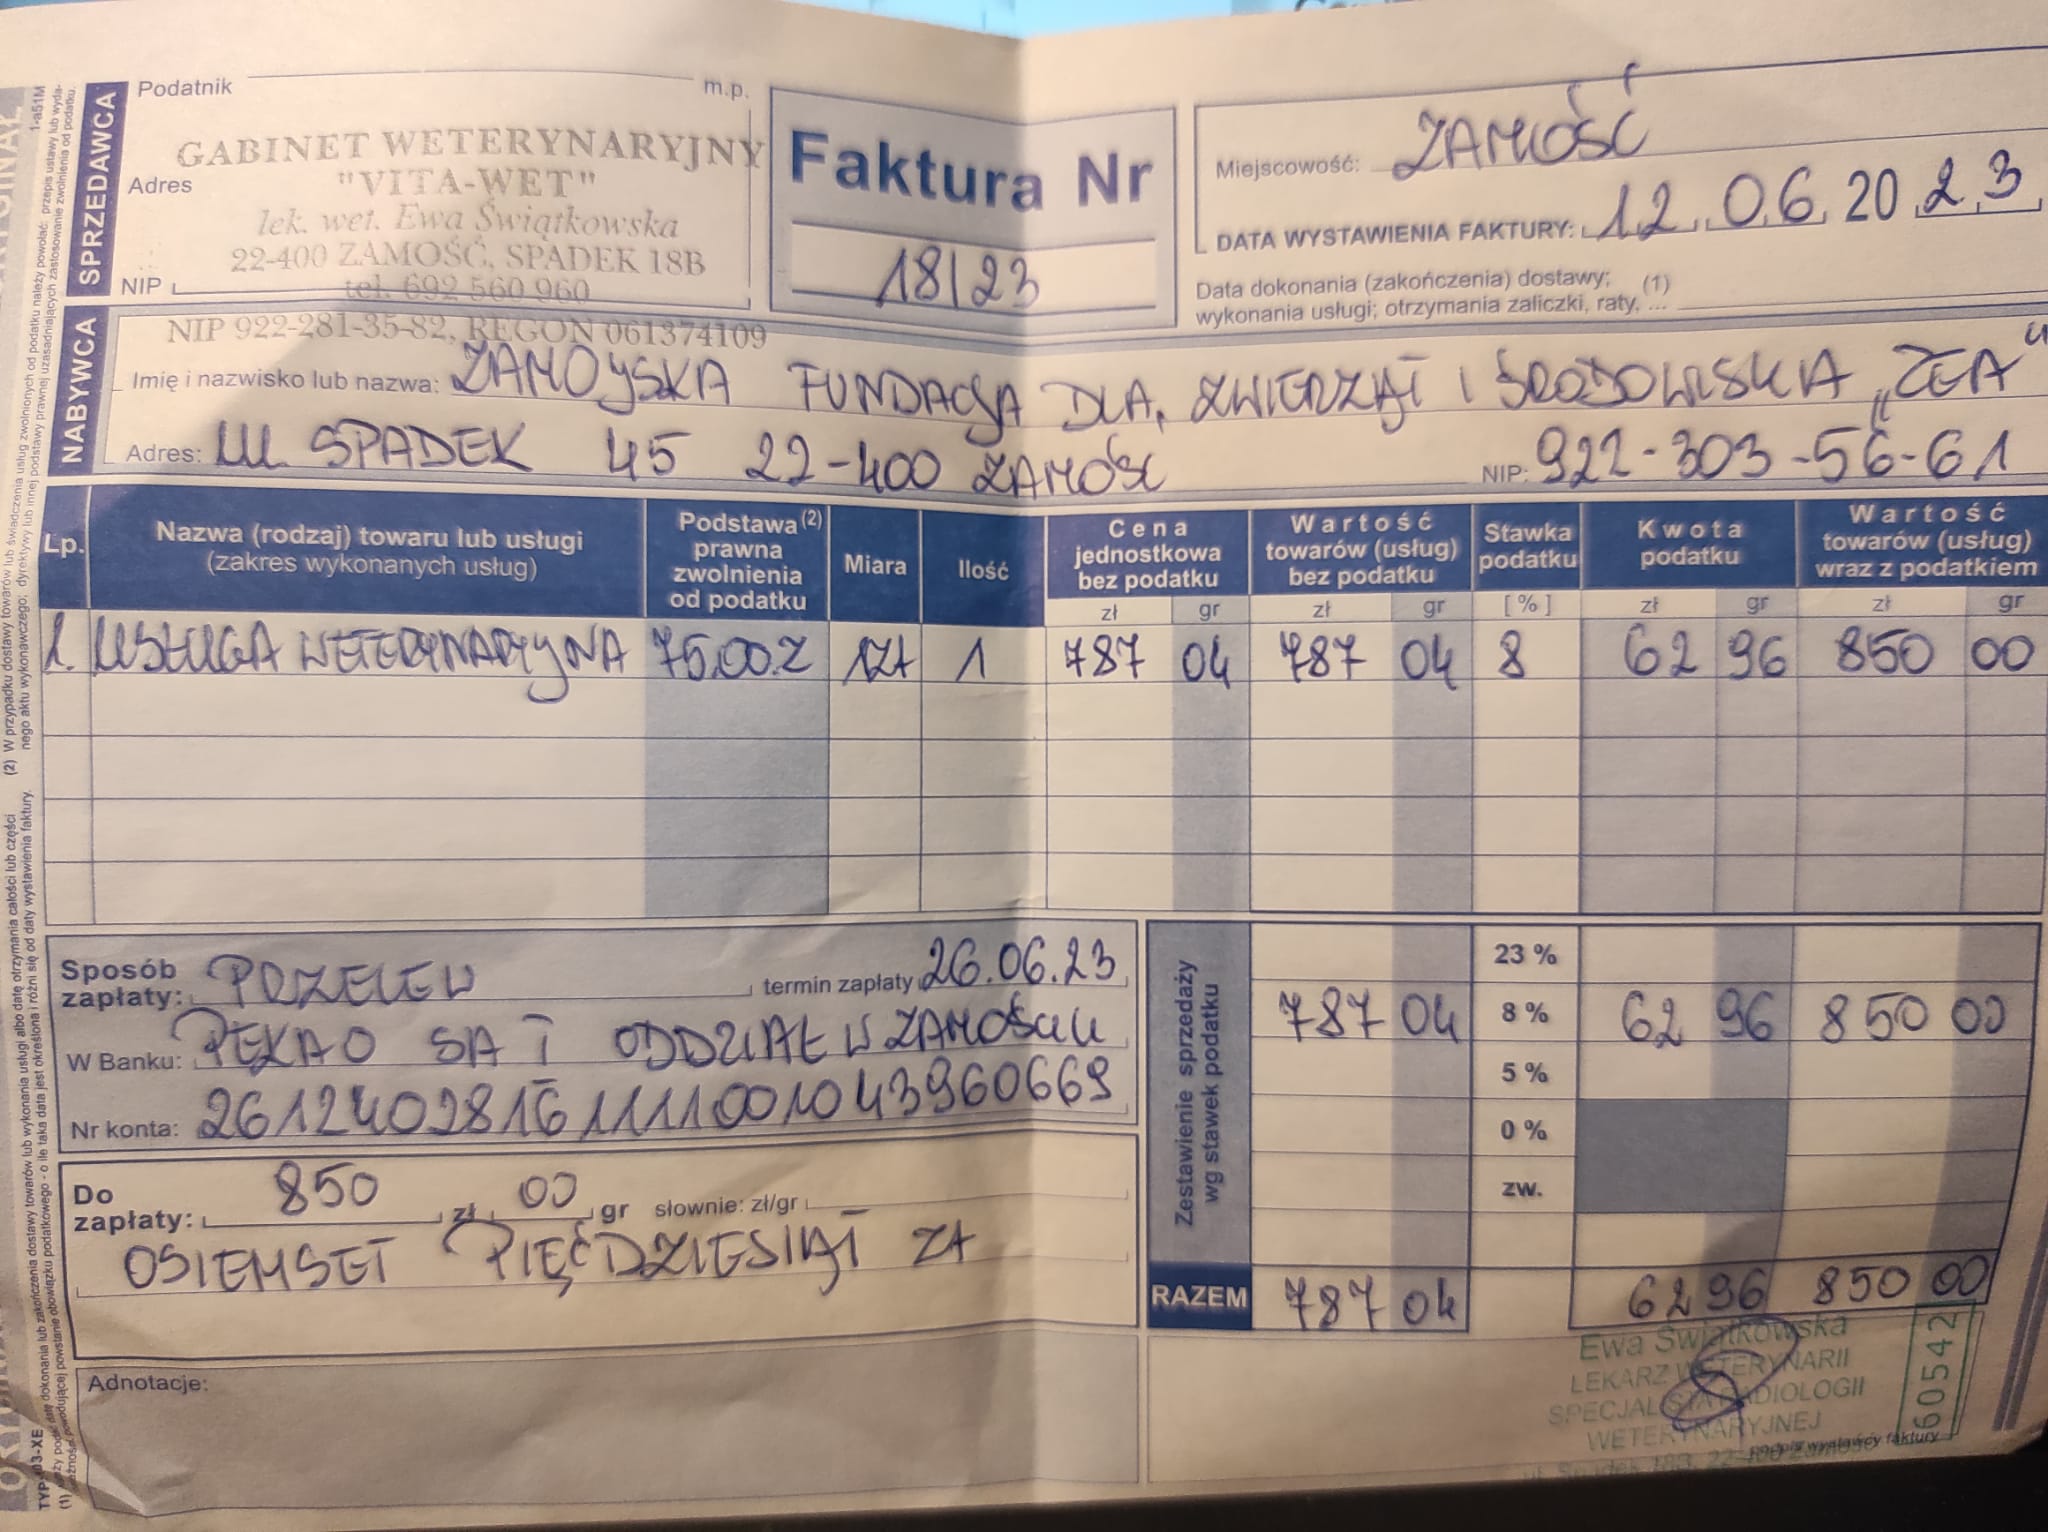 Podatnik
m.p.
SPRZEDAWCA
GABINET WETERYNARYJNY
Adres
"VITA-WET"
lek. wet. Ewa Świątkowska
22-400 ZAMOŚĆ, SPADEK 18B
NIP
tel. 692 560 960
NIP 922-281-35-82, REGON 061374109
Faktura Nr
18/23
Miejscowość: ZAMOŚĆ
DATA WYSTAWIENIA FAKTURY: 12.06.2023
Data dokonania (zakończenia) dostawy; (1)
wykonania usługi; otrzymania zaliczki, raty, ...
NABYWCA
Imię i nazwisko lub nazwa: ZAMOYSKA FUNDACJA DLA ZWIERZĄT I ŚRODOWISKA „ZEA"
Adres: UL. SPADEK 45 22-400 ZAMOŚĆ
NIP: 922-303-56-61
Lp.
Nazwa (rodzaj) towaru lub usługi
(zakres wykonanych usług)
Podstawa (2)
prawna
zwolnienia
od podatku
Miara
Ilość
Cena
jednostkowa
bez podatku
zł gr
Wartość
towarów (usług)
bez podatku
zł gr
Stawka
podatku
[%]
Kwota
podatku
zł gr
Wartość
towarów (usług)
wraz z podatkiem
zł gr
1. USŁUGA WETERYNARYJNA 75.00.Z 1 787 04 787 04 8 62 96 850 00
Sposób
zapłaty: PRZELEW termin zapłaty 26.06.23
W Banku: PEKAO SA I ODDZIAŁ W ZAMOŚCIU
Nr konta: 26124028161111001043960669
Do
zapłaty: 850 zł 00 gr słownie: zł/gr
OSIEMSET PIĘĆDZIESIĄT ZŁ
Adnotacje:
Zestawienie sprzedaży
wg stawek podatku
23 %
787 04 8 % 62 96 850 00
5 %
0 %
zw.
RAZEM 787 04 62 96 850 00
Ewa Świątkowska
LEKARZ WETERYNARII
SPECJALISTA RADIOLOGII
WETERYNARYJNEJ
60542
podpis wystawcy faktury
1-a51M
TYP-103-XE